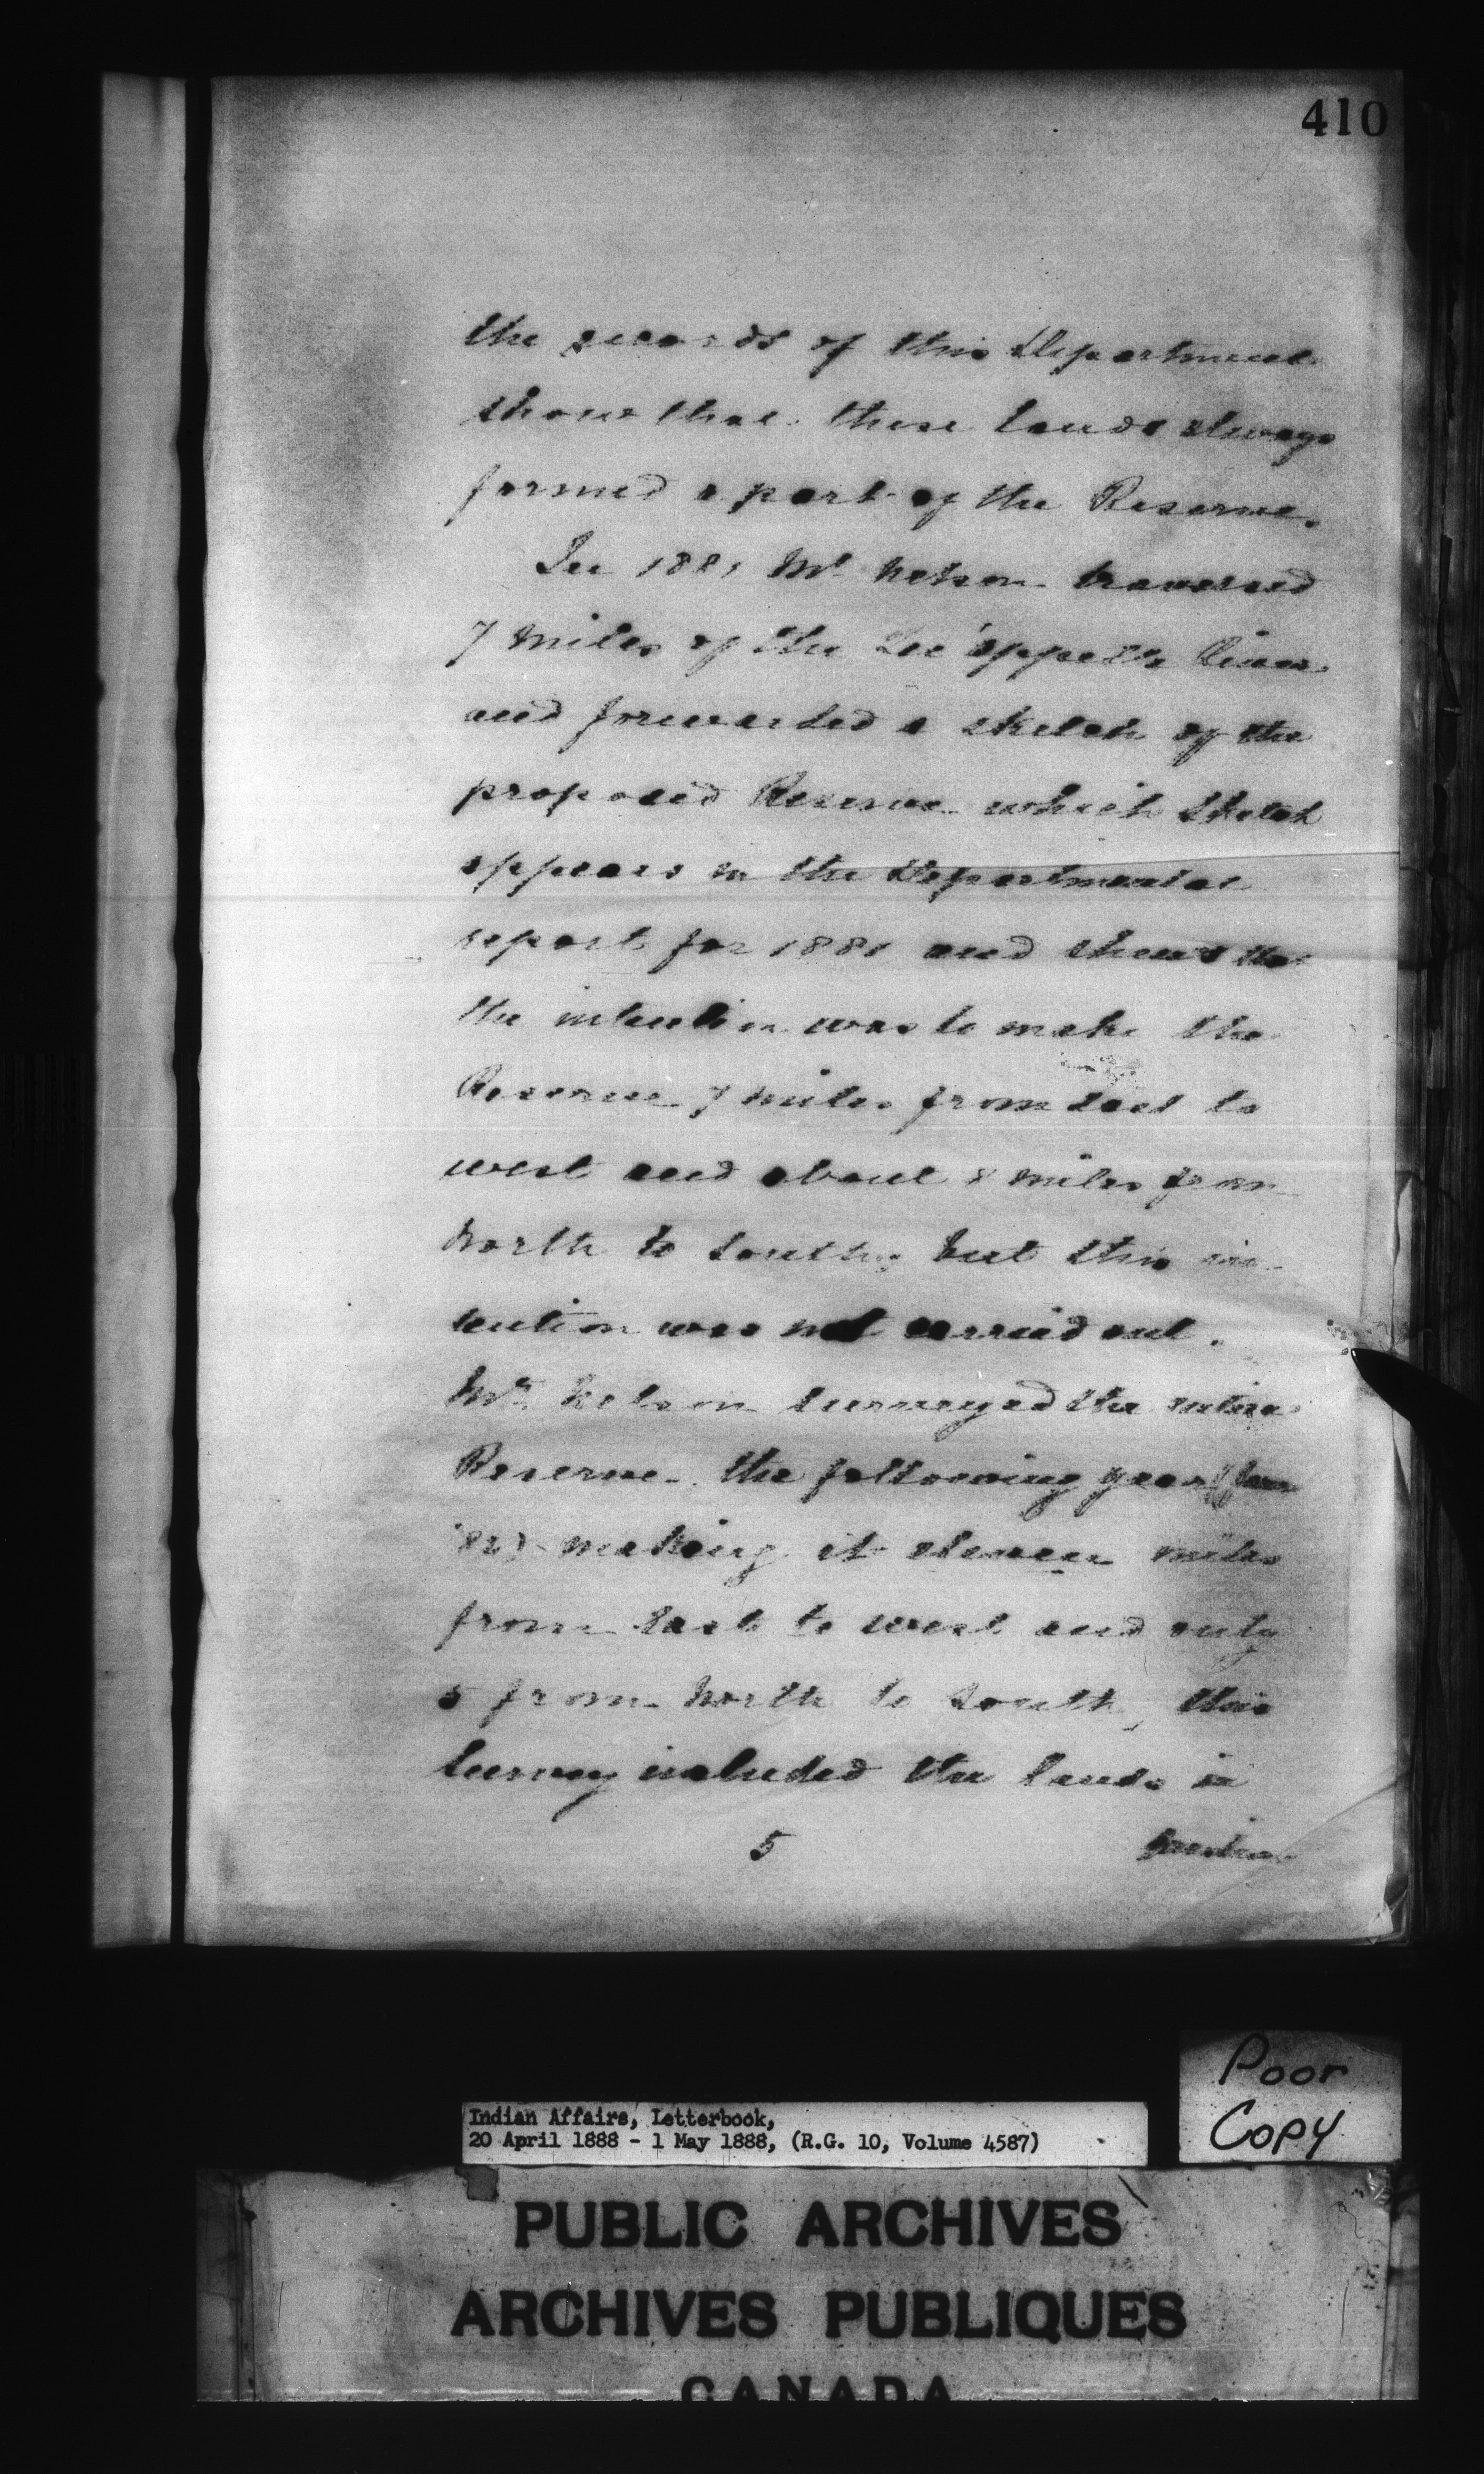 410
the records of this Department
shows that these lands always
formed a part of the Reserve.
In 1881 Mr Nelson traversed
7 miles of the Qu'appelle River
and forwarded a sketch of the
proposed Reserve which sketch
appears in the Departmental
report for 1881 and shews that
the intention was to make the
Reserve 7 miles from East to
west and about 8 miles from
North to South, but this in-
tention was not carried out.
Mr Nelson surveyed the entire
Reserve the following year
'82) making it eleven miles
from East to West and only
5 from North to South, this
survey included the lands in
5 question
Poor
Copy
Indian Affairs, Letterbook,
20 April 1888 - 1 May 1888, (R.G. 10, Volume 4587)
PUBLIC ARCHIVES
ARCHIVES PUBLIQUES
CANADA